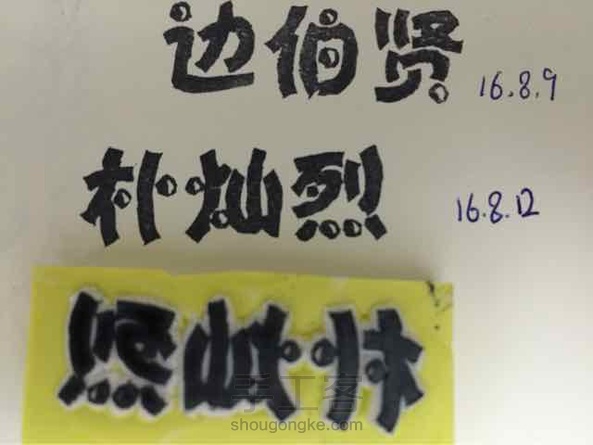 边伯贤 16.8.9
朴灿烈 16.8.12
朴灿烈
手工客
shougongke.com